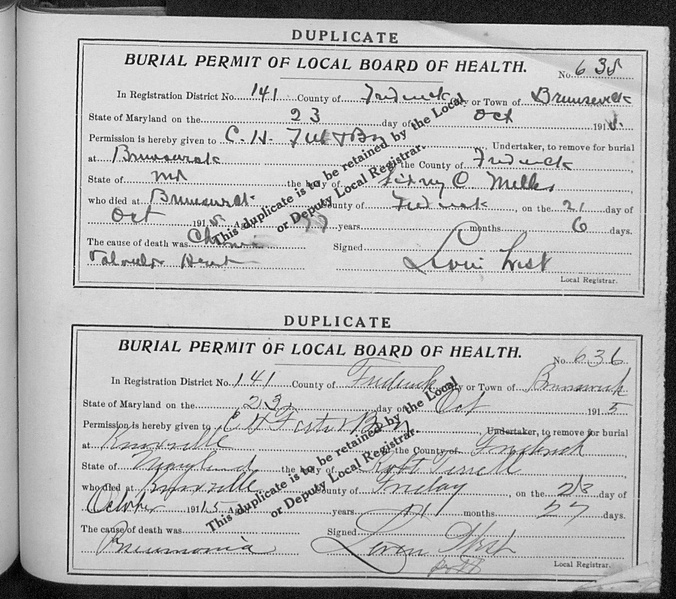 DUPLICATE
BURIAL PERMIT OF LOCAL BOARD OF HEALTH.
No. 635
In Registration District No. 141 County of Frederick City or Town of Brunswick
State of Maryland on the 23 day of Oct 1915.
Permission is hereby given to C. H. & Bro, Undertaker, to remove for burial
at Brunswick in the County of Frederick
State of Md the body of O Mills
who died at Brunswick County of Frederick, on the 21 day of
Oct 1915. years months 6 days.
The cause of death was Chronic Signed
Valvular Heart Levin West
Local Registrar.
This duplicate is to be retained by the Local
or Deputy Local Registrar.
DUPLICATE
BURIAL PERMIT OF LOCAL BOARD OF HEALTH.
No. 636
In Registration District No. 141 County of Frederick City or Town of Brunswick
State of Maryland on the 23 day of Oct 1915
Permission is hereby given to C H & Bro, Undertaker, to remove for burial
at Knoxville in the County of Frederick
State of Maryland the body of Robt
who died at Knoxville County of on the day of
October 1915 years 11 months 27 days.
The cause of death was Signed
Pneumonia Levin West
Local Registrar.
This duplicate is to be retained by the Local
or Deputy Local Registrar.